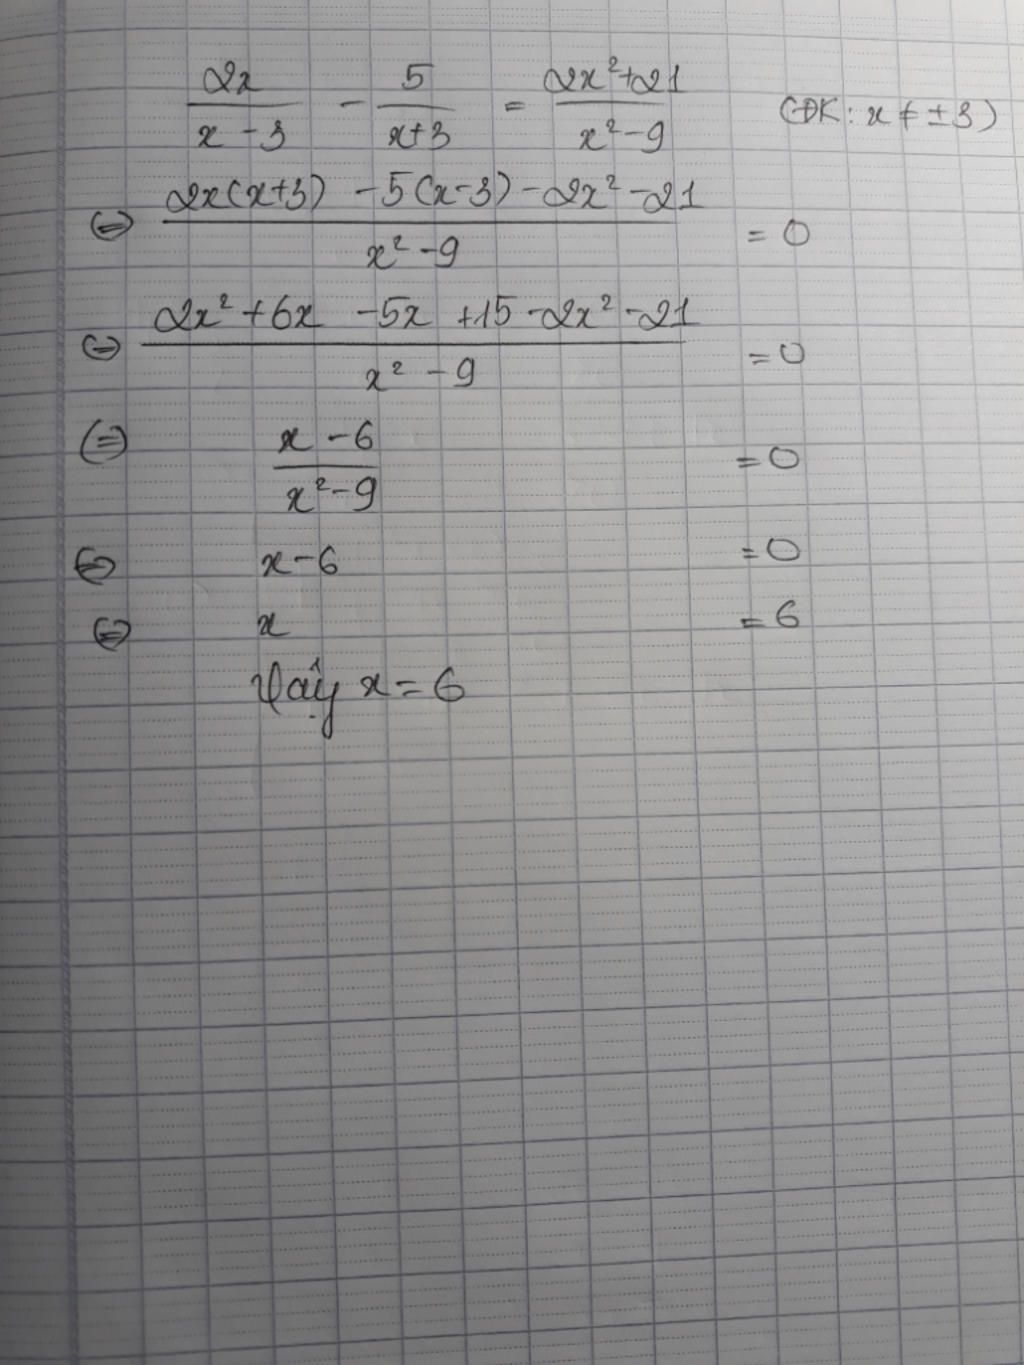 2x/(x - 3) - 5/(x+3) = (2x²+21)/(x²-9) (ĐK: x ≠ ±3)
⇔ (2x(x+3) -5(x-3) -2x² -21)/(x² -9) = 0
⇔ (2x² +6x -5x +15 -2x² -21)/(x² -9) = 0
⇔ (x -6)/(x²-9) = 0
⇔ x-6 = 0
⇔ x = 6
Vậy x = 6